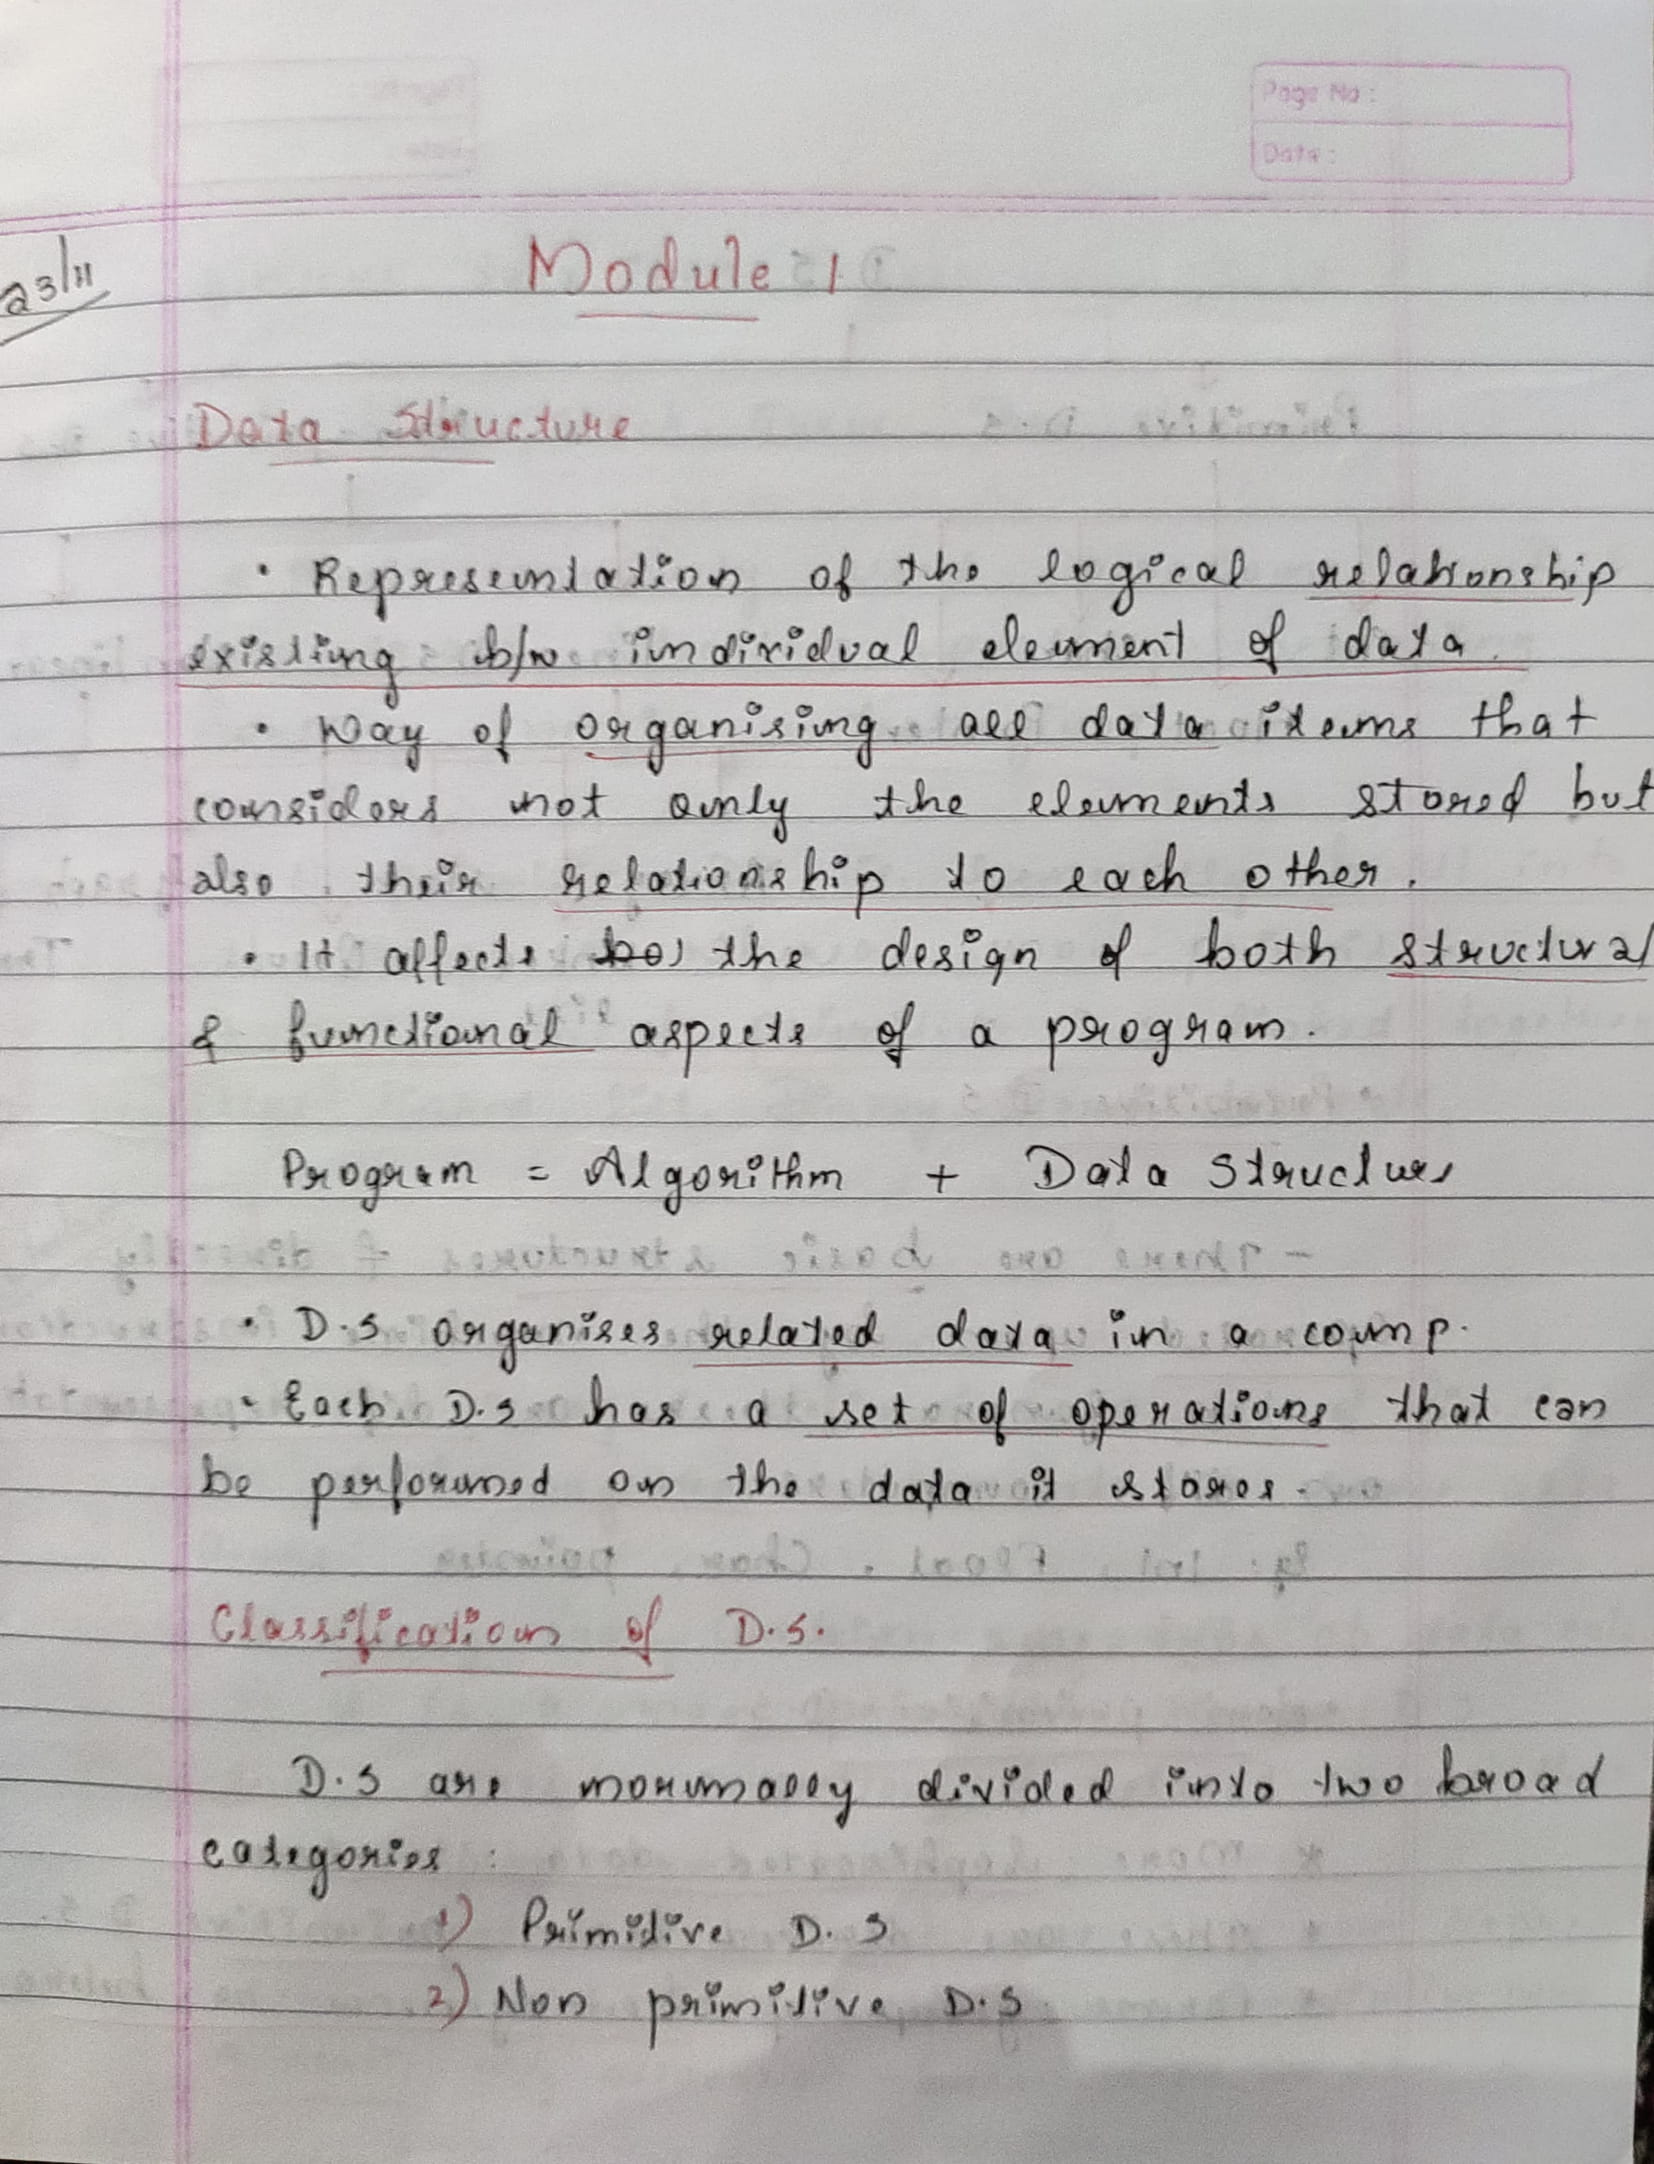 Page No :
Date :
23/11
Module 1
Data Structure
• Representation of the logical relationship
existing b/w individual element of data.
• Way of organising all data items that
considers not only the elements stored but
also their relationship to each other.
• It affects bo the design of both structural
& functional aspects of a program.
Program = Algorithm + Data Structure
• D.S organises related data in a comp.
• Each D.S has a set of operations that can
be performed on the data it stores.
Classification of D.S.
D.S are normally divided into two broad
categories :
1) Primitive D.S
2) Non primitive D.S